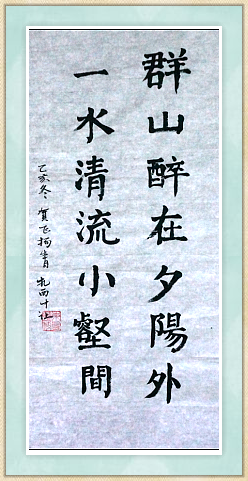 群山醉在夕陽外
一水清流小壑間
乙亥冬